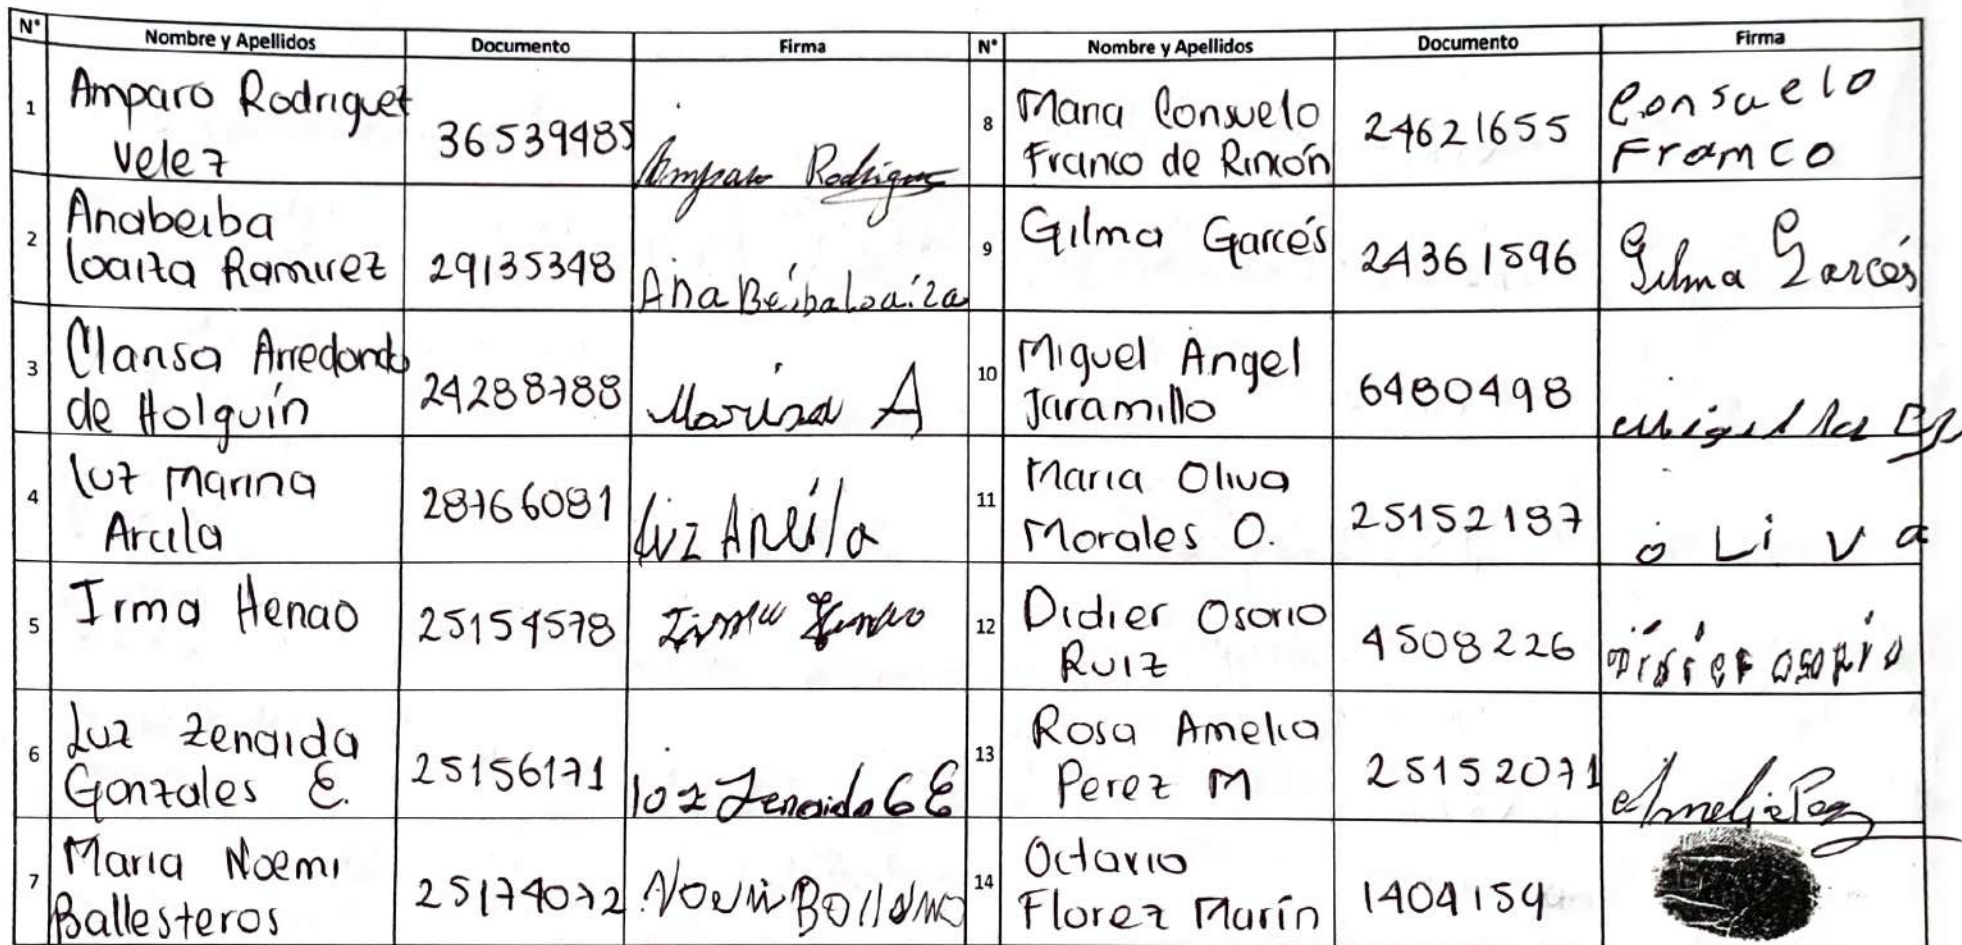 N° Nombre y Apellidos Documento Firma N° Nombre y Apellidos Documento Firma
1 Amparo Rodriguez
Velez
36539485
Amparo Rodrigue
8 Maria Consuelo
Franco de Rincón
24621655
Consuelo
Framco
2 Anabeiba
loaiza Ramirez
29135348
Ana Beiba Loaiza
9 Gilma Garcés
24361596
Gilma Garcés
3 Clarisa Arredondo
de Holguín
24288788
Marisa A
10 Miguel Angel
Jaramillo
6480498
Miguel
4 luz Marina
Arcila
28766081
luz Arcila
11 Maria Oliva
Morales O.
25152187
o Li v a
5 Irma Henao
25154578
Irma Henao
12 Didier Osorio
Ruiz
4508226
Didier osorio
6 Luz Zenaida
Gonzales E.
25156171
loz Zenaida G E
13 Rosa Amelia
Perez M
25152071
Amelia
7 Maria Noemi
Ballesteros
25174072
Noemi
14 Octavio
Florez Marín
1404154